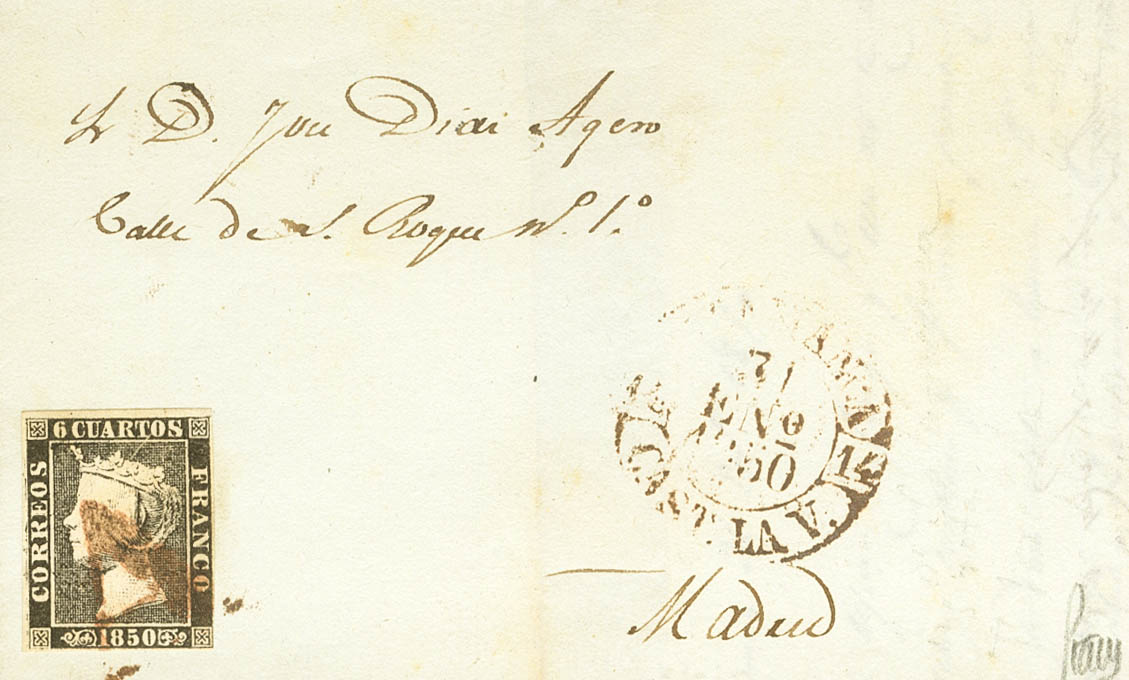 Sr D. José Diaz Agero
Calle de S. Roque nº. 1.º
6 CUARTOS
CORREOS
FRANCO
1850
31
ENº
1850
CAST. LA V.
14
Madrid